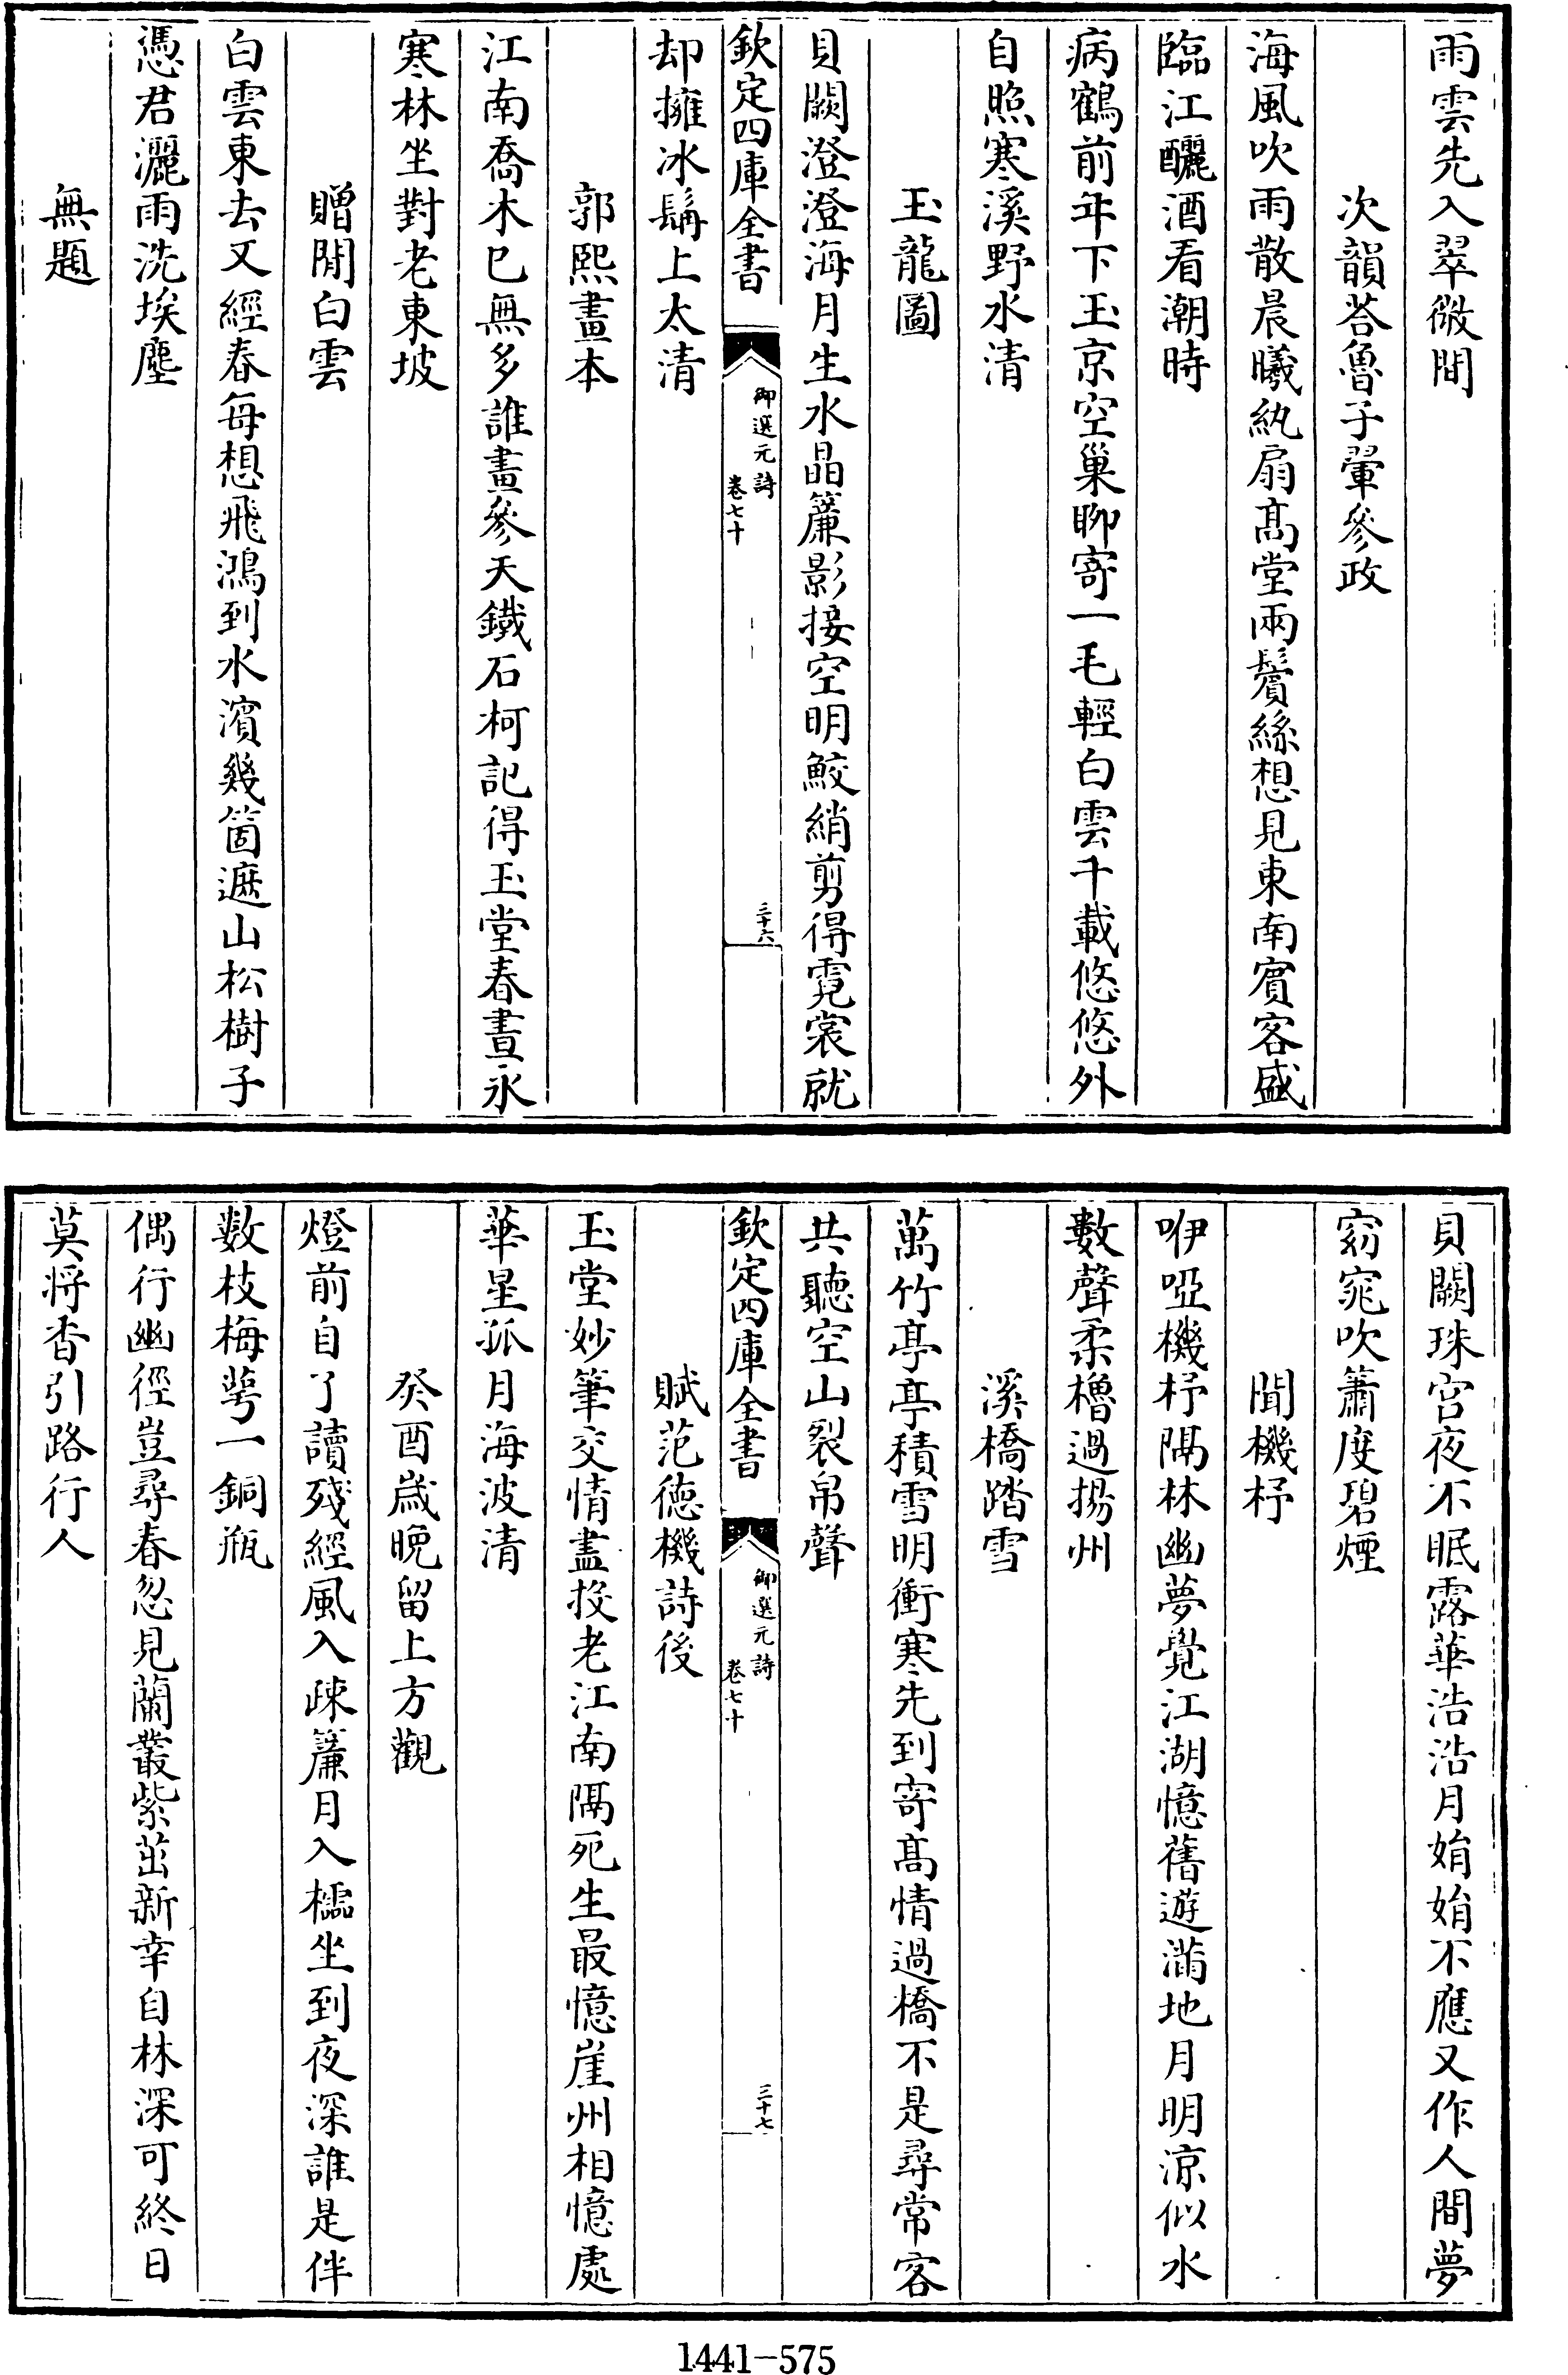 雨雲先入翠微間
次韻荅魯子翬參政
海風吹雨散晨曦紈扇髙堂兩鬢絲想見東南賓客盛
臨江釃酒看潮時
病鶴前年下玉京空巢聊寄一毛輕白雲千載悠悠外
自照寒溪野水清
玉龍圖
貝闕澄澄海月生水晶簾影接空明鮫綃剪得霓裳就
欽定四庫全書
御選元詩
卷七十
三十六
却擁冰鬅上太清
郭熙畫本
江南喬木已無多誰畫參天鐵石柯記得玉堂春晝永
寒林坐對老東坡
贈閒白雲
白雲東去又經春每想飛鴻到水濱幾箇遮山松樹子
憑君灑雨洗埃塵
無題
貝闕珠宮夜不眠露華浩浩月娟娟不應又作人間夢
窈窕吹簫度碧煙
聞機杼
咿啞機杼隔林幽夢覺江湖憶舊遊滿地月明涼似水
數聲柔櫓過揚州
溪橋踏雪
萬竹亭亭積雪明衝寒先到寄髙情過橋不是尋常客
共聽空山裂帛聲
欽定四庫全書
御選元詩
卷七十
三十七
賦范徳機詩後
玉堂妙筆交情盡投老江南隔死生最憶崖州相憶處
華星孤月海波清
癸酉歲晚留上方觀
燈前自了讀殘經風入疎簾月入櫺坐到夜深誰是伴
數枝梅萼一銅瓶
偶行幽徑豈尋春忽見蘭叢紫茁新幸自林深可終日
莫将香引路行人
1441-575